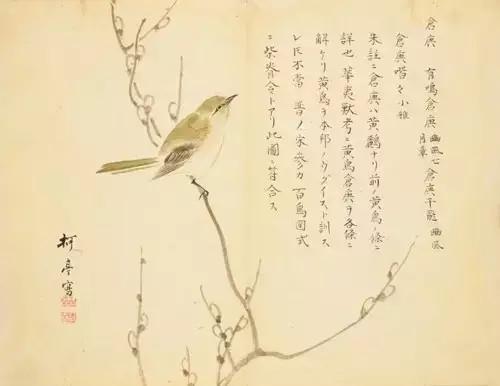 倉庚 有鳴倉庚 豳風七月章 倉庚于飛 豳風
倉庚喈々 小雅
朱註ニ倉庚ハ黄鸝ナリ前ノ黄鳥ノ條ニ
詳也 華夷獣考ニ黄鳥倉庚ヲ各條ニ
解ケリ黄鳥ヲ本邦ノウグイスト訓ス
レ𪜈不當 ノ宋 カ百鳥図式
ニ柴脊令トアリ此圖ニ符合ス
柯亭寫